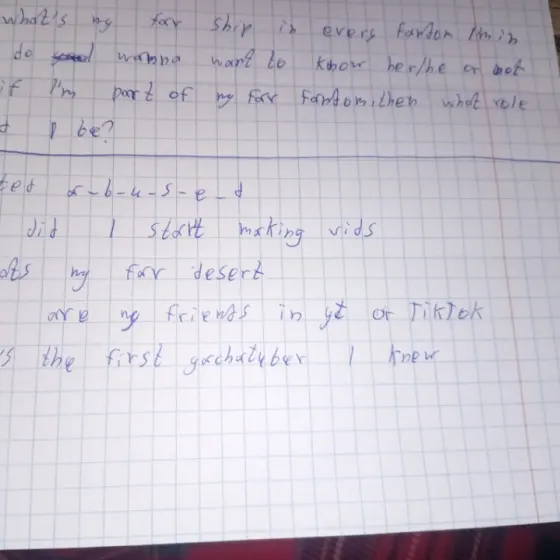 what's my fav ship in every fandom I'm in
do wanna want to know her/he or not
if I'm part of my fav fandom, then what role
I be?
a-b-u-s-e-d
did I start making vids
my fav desert
are my friends in yt or TikTok
the first gachatuber I knew